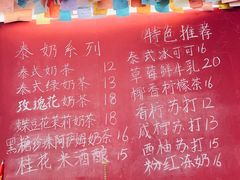 泰奶系列
泰式奶茶 12
泰式绿奶茶 13
玫瑰花奶茶 18
蝶豆花茉莉奶茶 18
黑糖珍珠阿萨姆奶茶 16
桂花米酒酿 15
特色推荐
泰式冰可可 16
草莓鲜牛乳 20
椰香柠檬茶 16
香柠苏打 12
咸柠苏打 13
西柚苏打 15
粉红冻奶 16